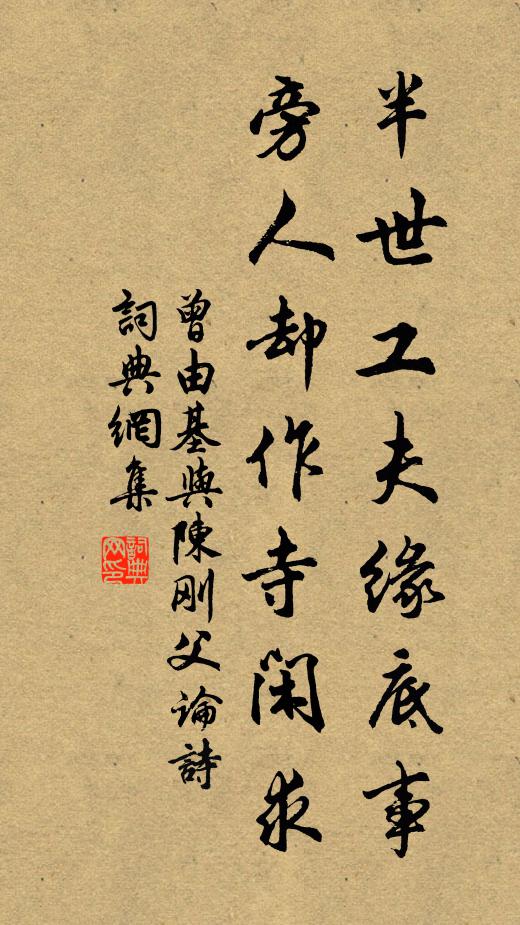 半世工夫緣底事
旁人却作寺閑求
曾由基與陳刚父論詩
詞典網集
詞典
网印